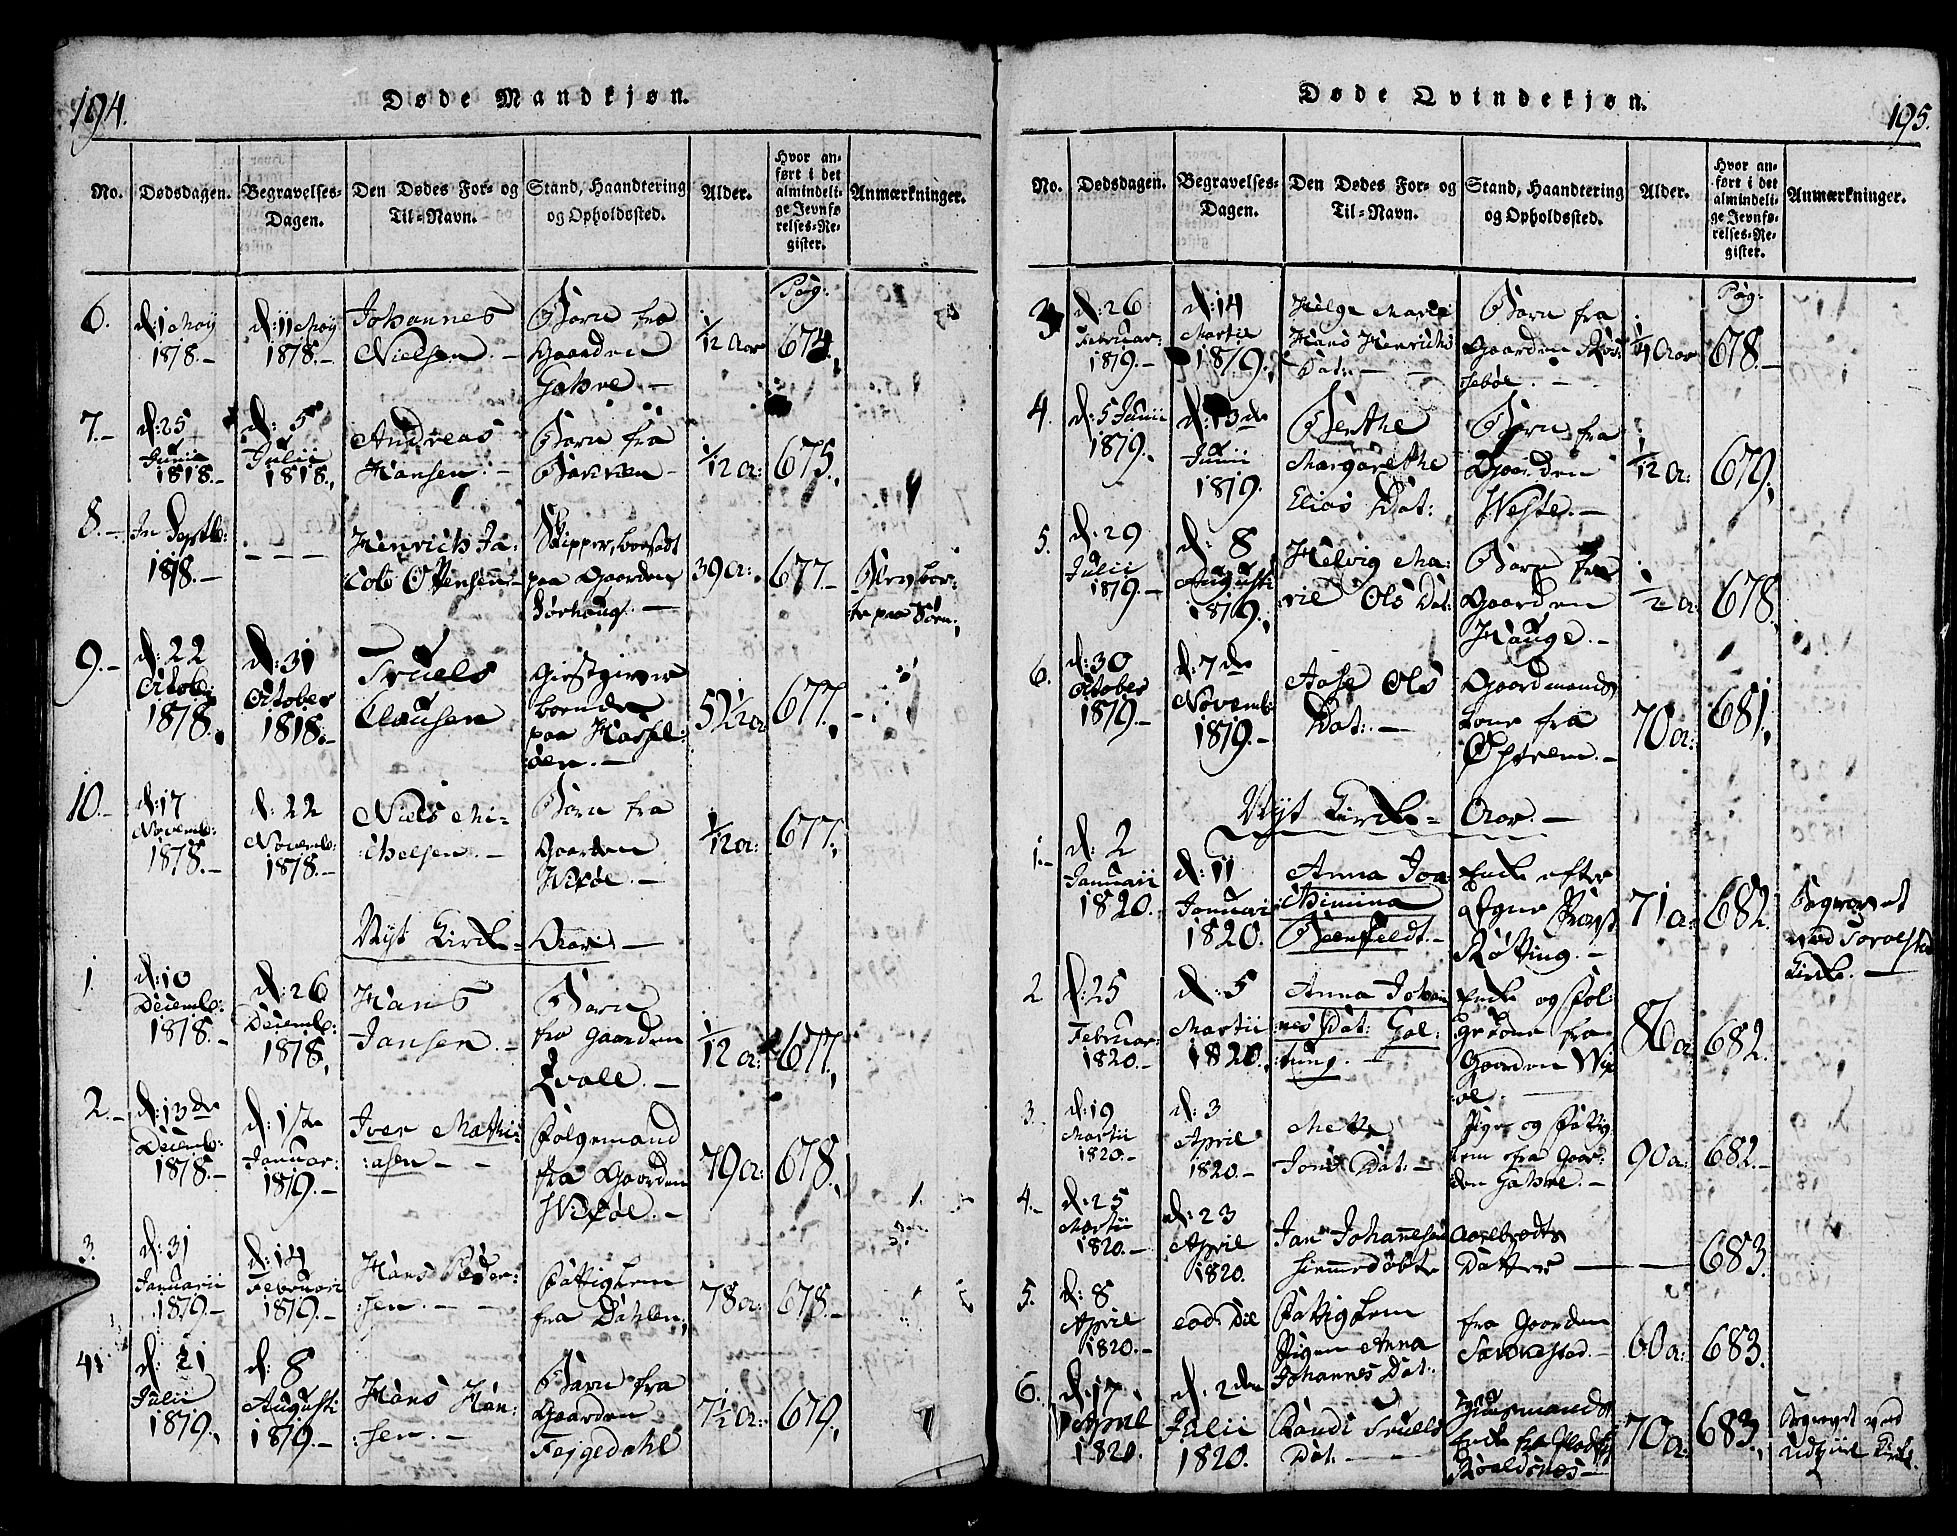 194.
Døde Mandkjøn.
No. Dødsdagen. Begravelses-Dagen. Den Dødes For- og Til-Navn. Stand, Haandtering og Opholdssted. Alder. Hvor anført i det almindelige Jevnførelses-Register. Anmærkninger.
Pag:
6. d: 1 May 1818.- d: 11 May 1818.- Johannes Nielsen.- Barn fra Gaarden 1/12 Aar 674.
7.- d: 25 Junii 1818.- d: 5 Julii 1818. Andreas Hansen.- Barn fra 1/12 a: 675.
8.- In Septb: 1818.- - - - Henrich Jacob Ottersen.- Skipper, boesadt paa Gaarden Sørhaug.- 39 a: 677.- Blev borte paa Søen.
9.- d: 22 Octob: 1818. d: 31 October 1818.- Truels Clausen Giestgiver boende paa Hasseløen.- 51 1/2 a 677.
10.- d: 17 Novemb: 1818.- d: 22 Novemb: 1818.- Niels Michelsen.- Barn fra Gaarden 1/12 a: 677.
Nyt Kirke-Aar.-
1. d: 10 Decemb: 1818.- d: 26 Decemb: 1818. Hans Jansen.- Barn fra Gaarden Qvale.- 1/12 a: 677.
2.- d: 13de Decemb: 1818.- d: 1ste Januar: 1819.- Iver Mathiasen - - Følgemand fra Gaarden 79 a: 678.
3. d: 31 Januarii 1819.- d: 14 Februari 1819.- Hans Pedersen.- - Fattiglem fra Dahlen. 78 a: 678.-
4. d: 21 Julii 1819. d: 8 Augusti 1819.- Hans Hansen.- Barn fra Gaarden Fejgedahl 7 1/2 a: 679.
195.
Døde Qvindekjøn.
No. Dødsdagen. Begravelses-Dagen. Den Dødes For- og Til-Navn. Stand, Haandtering og Opholdssted. Alder. Hvor anført i det almindelige Jevnførelses-Register. Anmærkninger.
Pag:
3 d: 26 Februar: 1819.- d: 14 Martii 1819. Helge Marie Hans Henrichs Dat:- - Barn fra Gaarden 1/4 Aar 678.-
4. d: 5 Junii 1819. d: 13de Junii 1819. Berthe Margarethe Elias Dat: Barn fra Gaarden 1/12 a: 679.
5. d: 29 Julii 1819.- d: 8 Augusti 1819. Helvig Marie Ols Dat: Barn fra Gaarden Hauge.- 1/2 a: 678.
6. d: 30 October 1819.- d: 7de Novemb: 1819.- Aase Ols Dat:- Gaardmands Kone fra Østrem.- 70 a: 681.
Nyt Kirke-Aar.-
1.- d: 2 Januarii 1820.- d: 11 Januari 1820. Anna Joachimina Enke efter Provst 71 a: 682. Begravet ved Kirke.-
2 d: 25 Februar: 1820.- d: 5 Martii 1820. Anna Johannes Dat: Galtung.- Enke og Følgekone fra Gaarden 86 a 682.
3. d: 19 Martii 1820.- d: 3 April 1820.- Mette Jons Dat:- Pige og Fattiglem fra Gaarden 90 a: 682.-
4.- d: 25 Martii 1820.- d: 23 April 1820. Jan Johannesens hiemmedøbte Datter - - 683.
5. d: 8 April 1820.- eod: Die Fattiglem Pigen Anna Johannes Dat: fra Gaarden 60 a: 683.
6. d: 17 April 1820. d: 2den Julii 1820. Randi Truels Dat:- - Huusmands Enke fra Roaldsnes- 70 a: 683. Begravet ved Udzire Kirke.